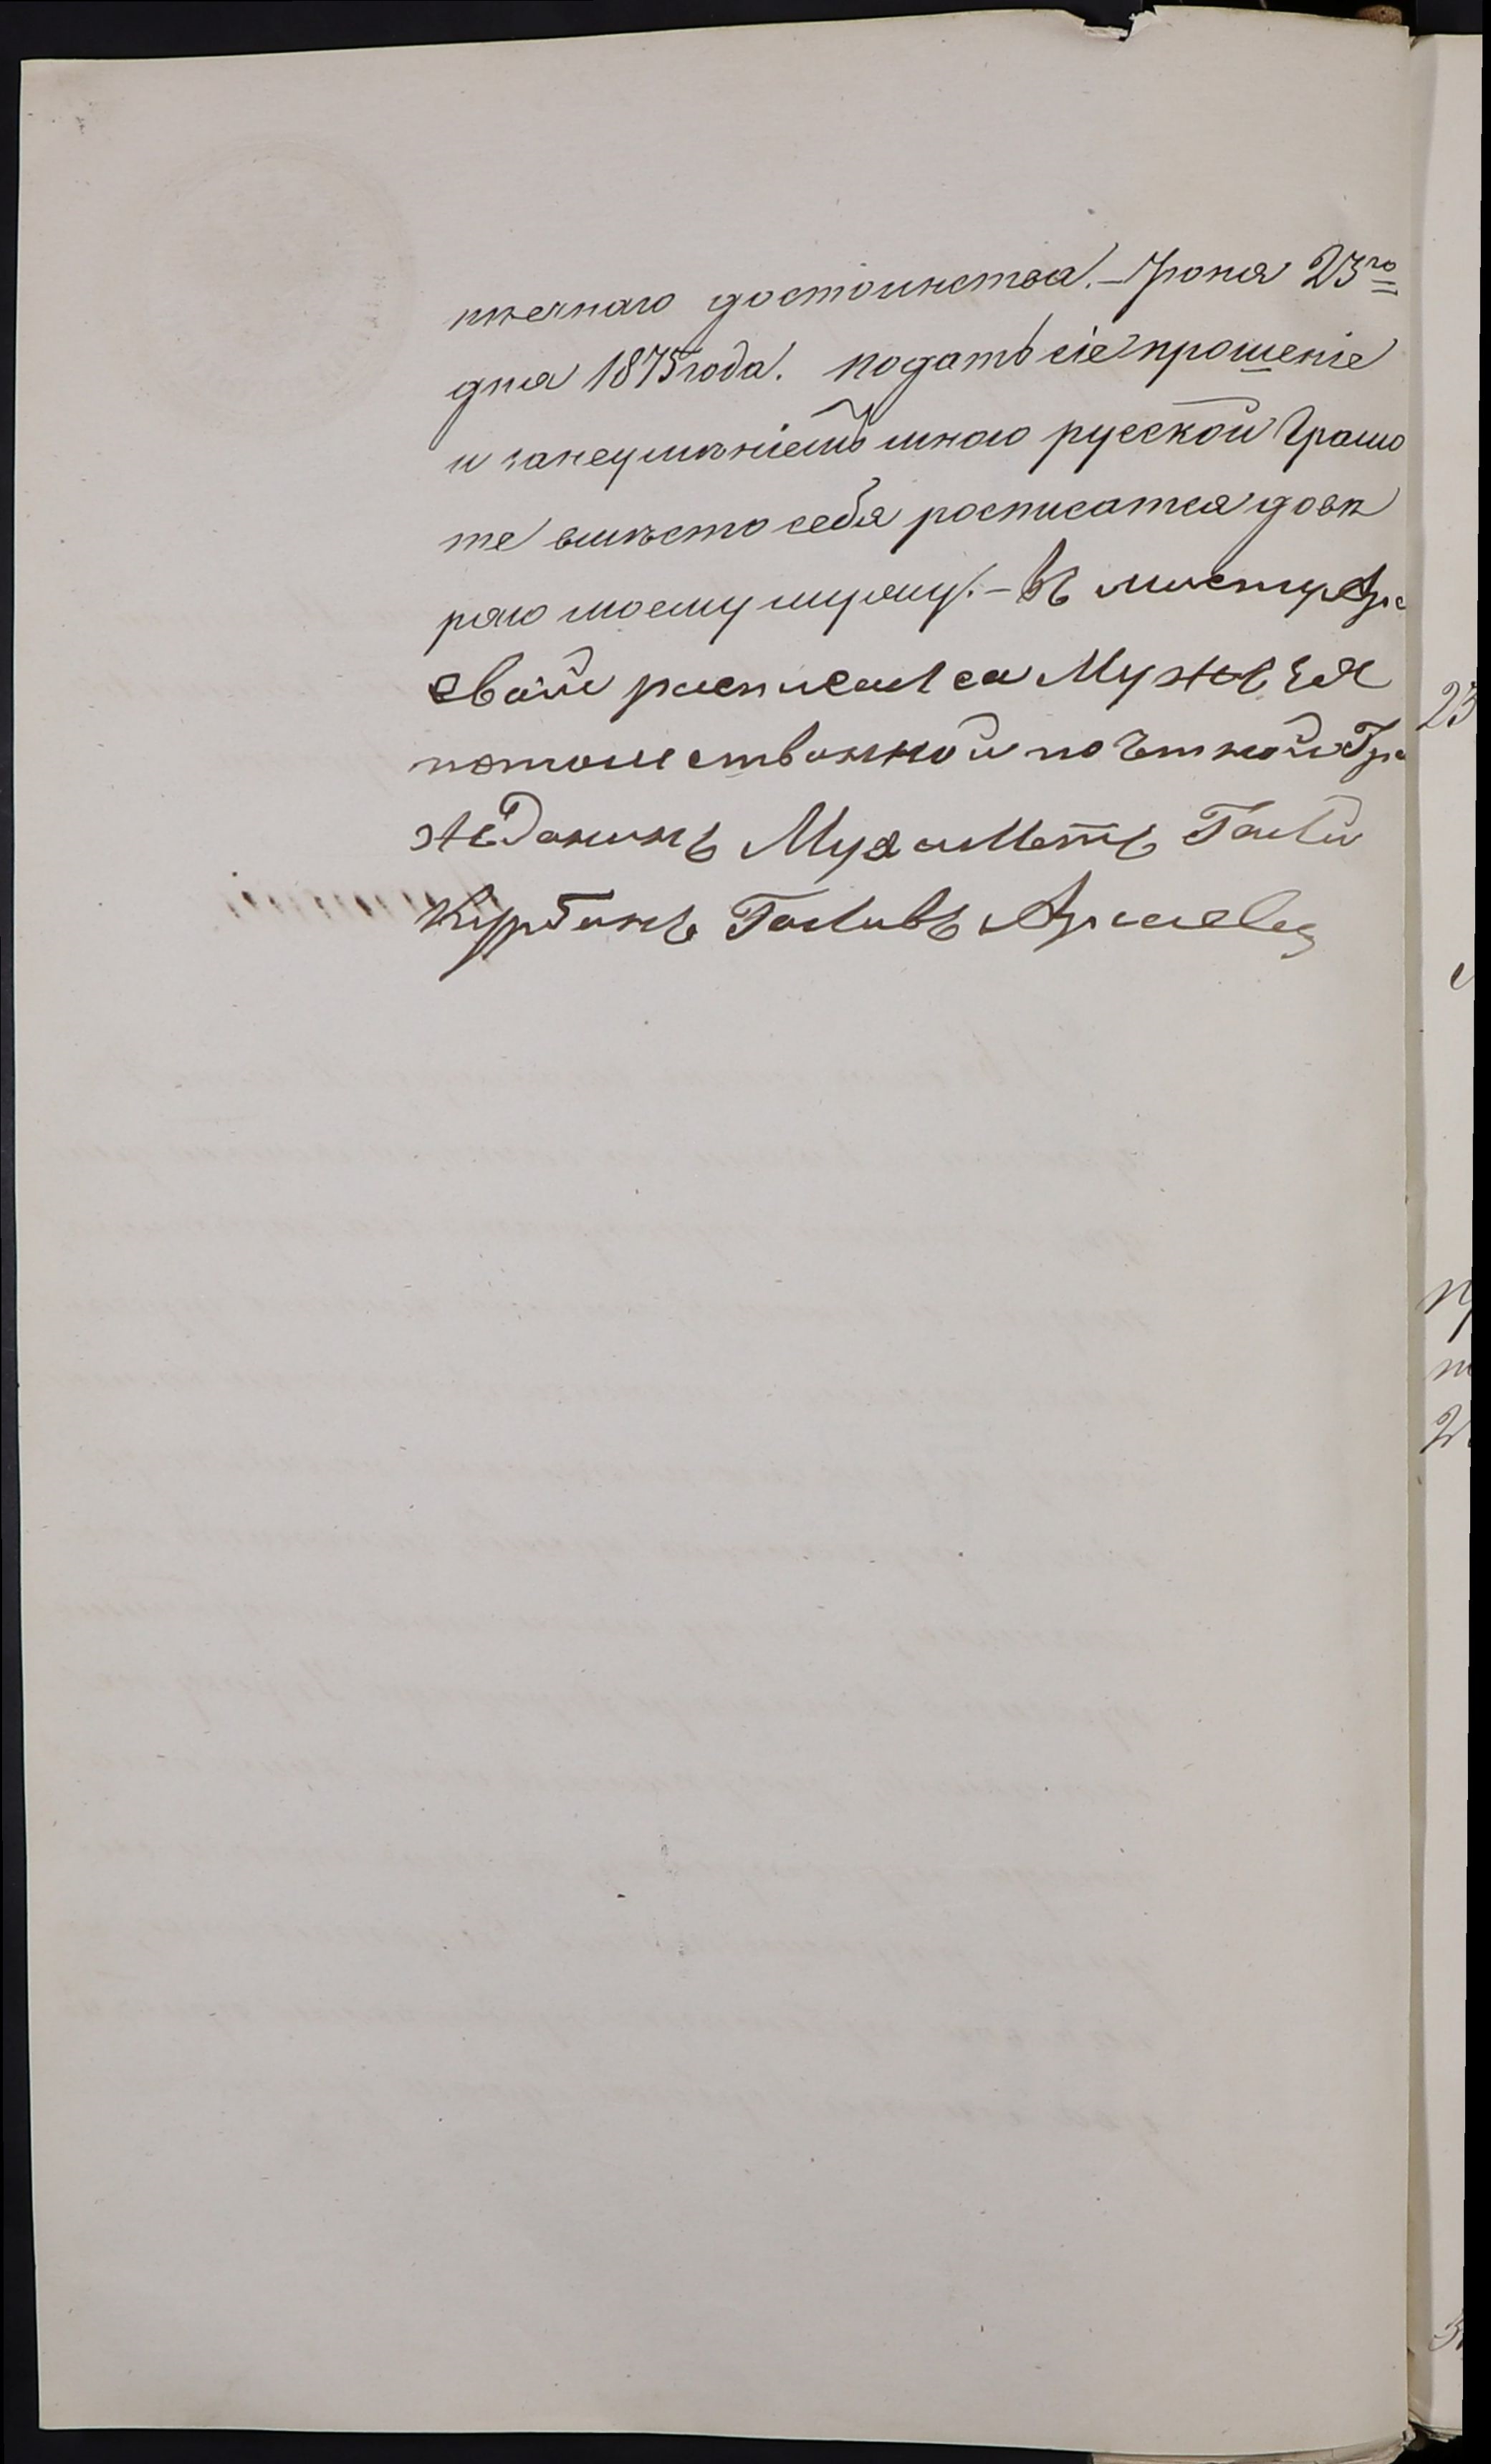 пжечнаго достоинства. – Іюня 23го
дня 1875 года. подать сіе прошеніе
и занеумѣніемъ мною русской Грамо
те вместо себя росписатся довѣ
ряю моему мужу. – Въ место Ар
свой росписался Мужъ ея
потомственной почтной Гра
жданинъ Мухаметъ Гали
Курбанъ Галивъ
23